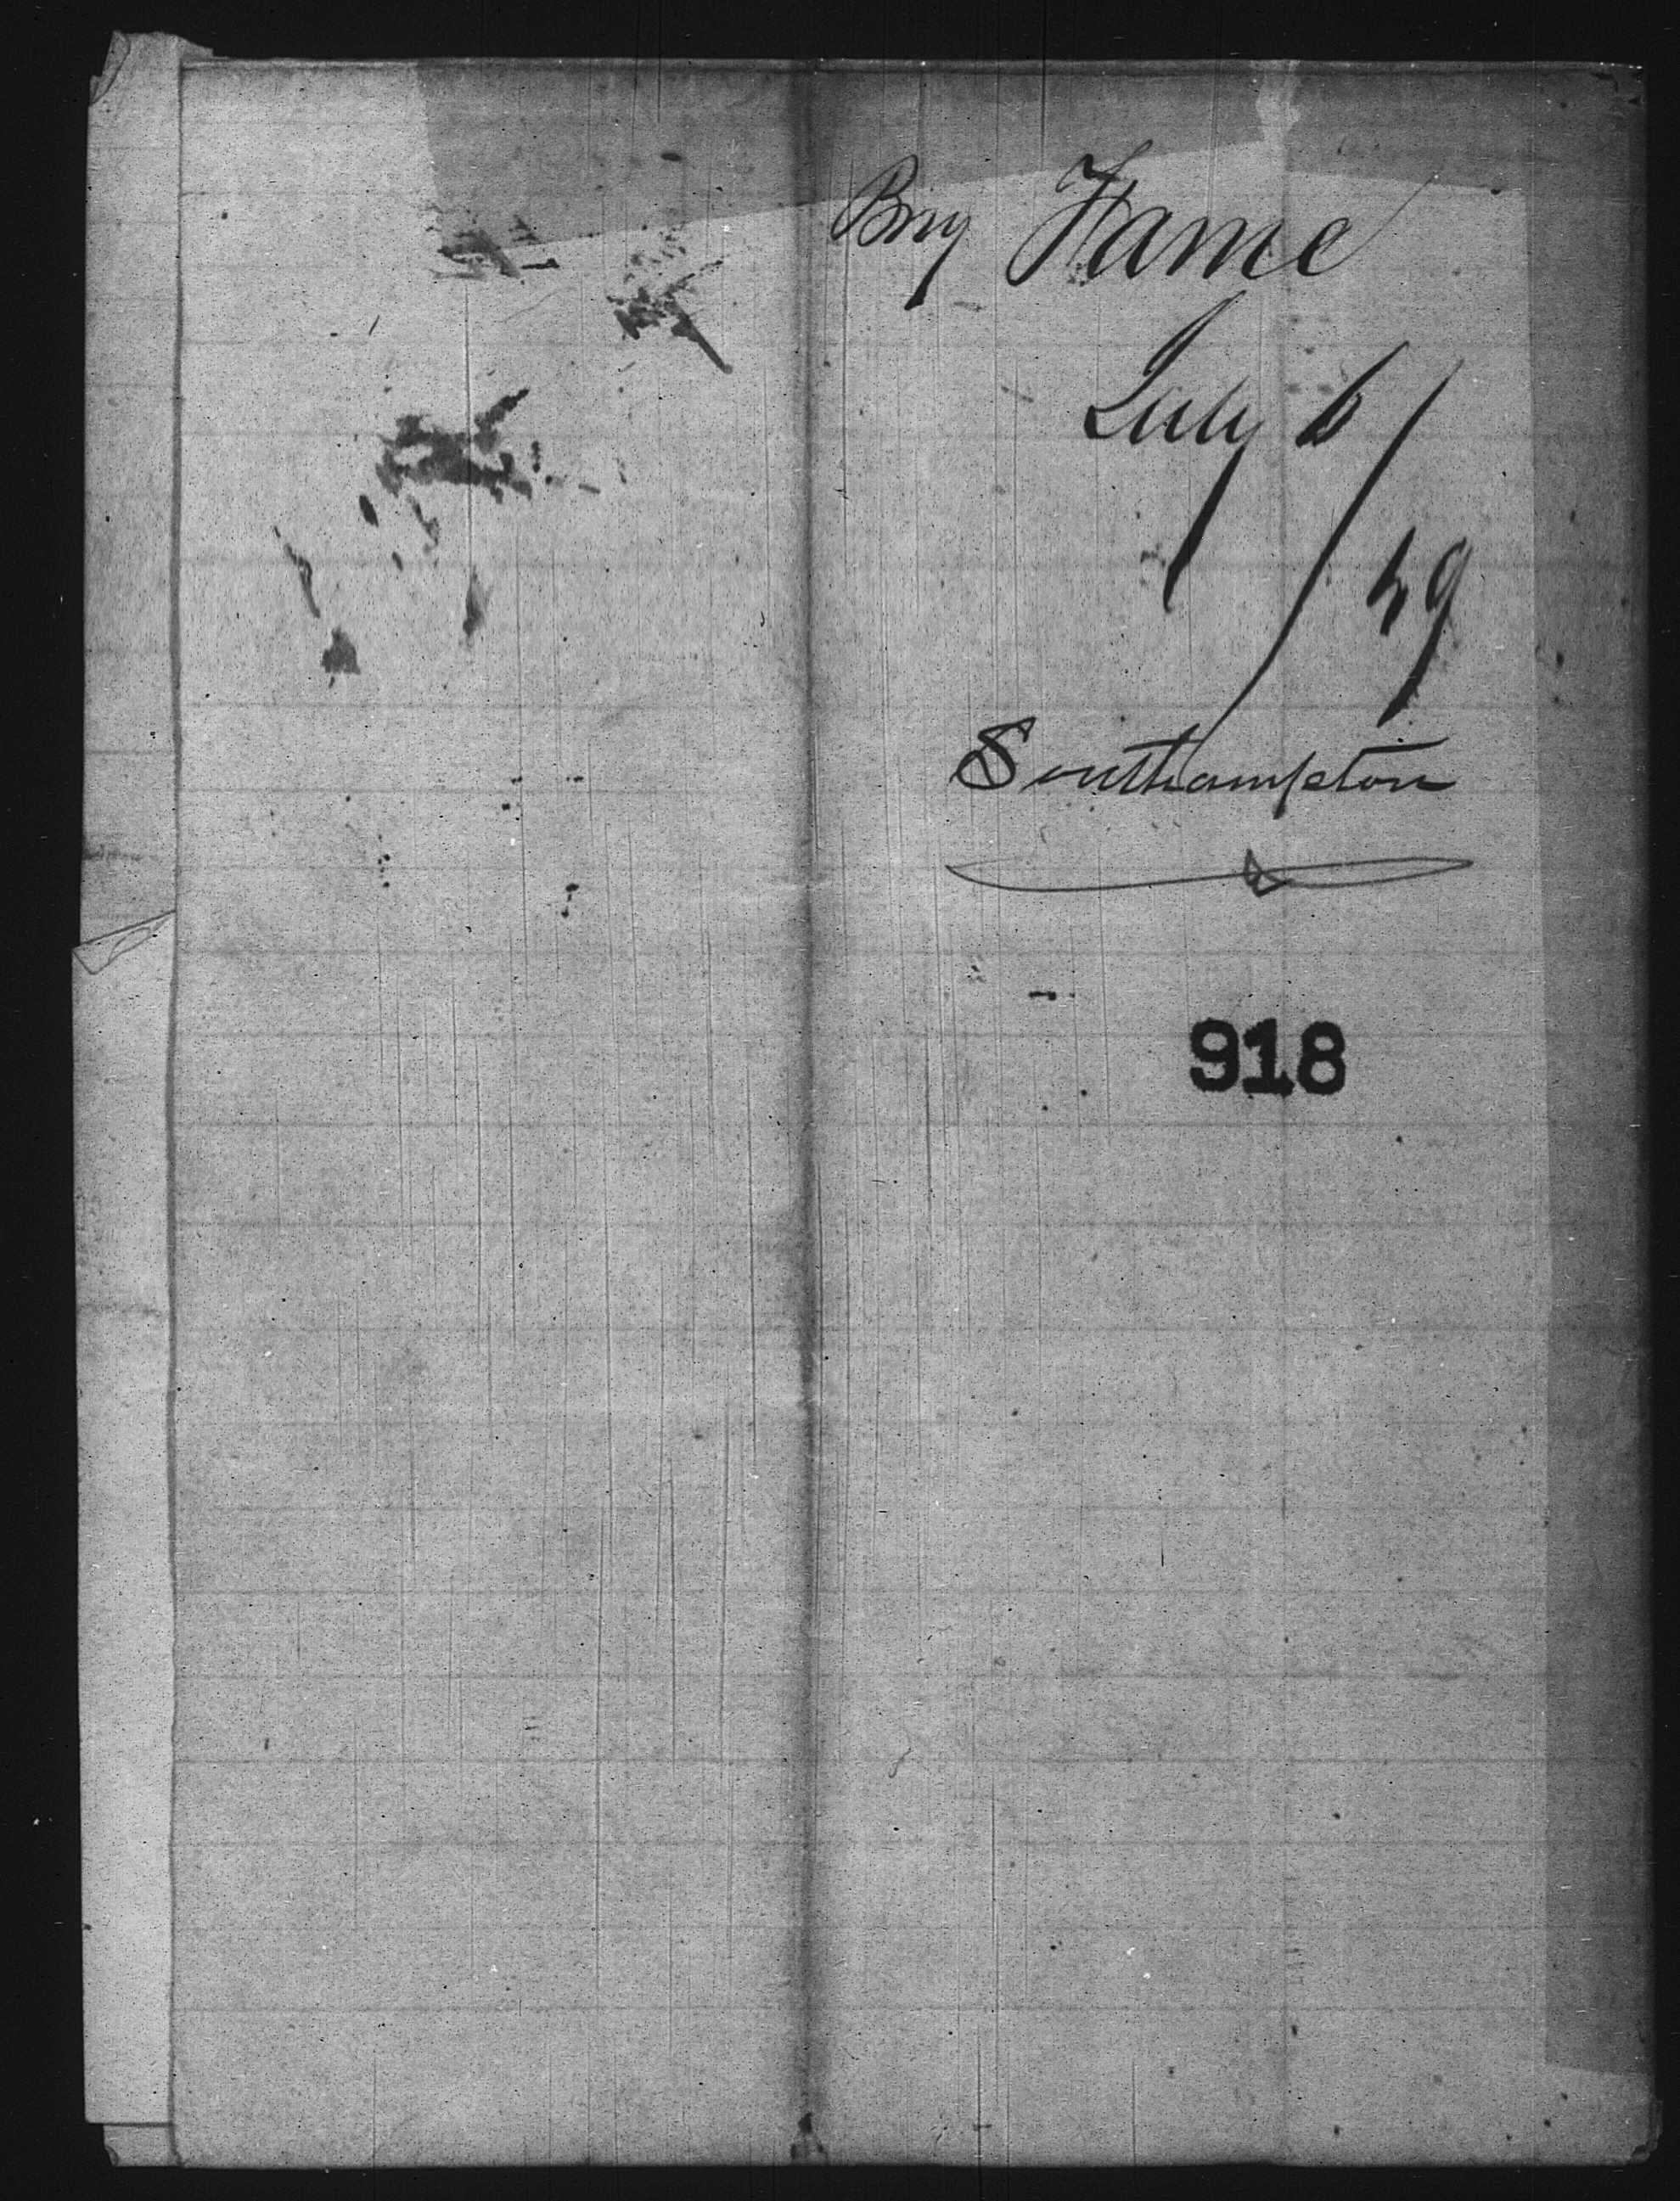 Brig Fame
July 6/49
Southampton
918